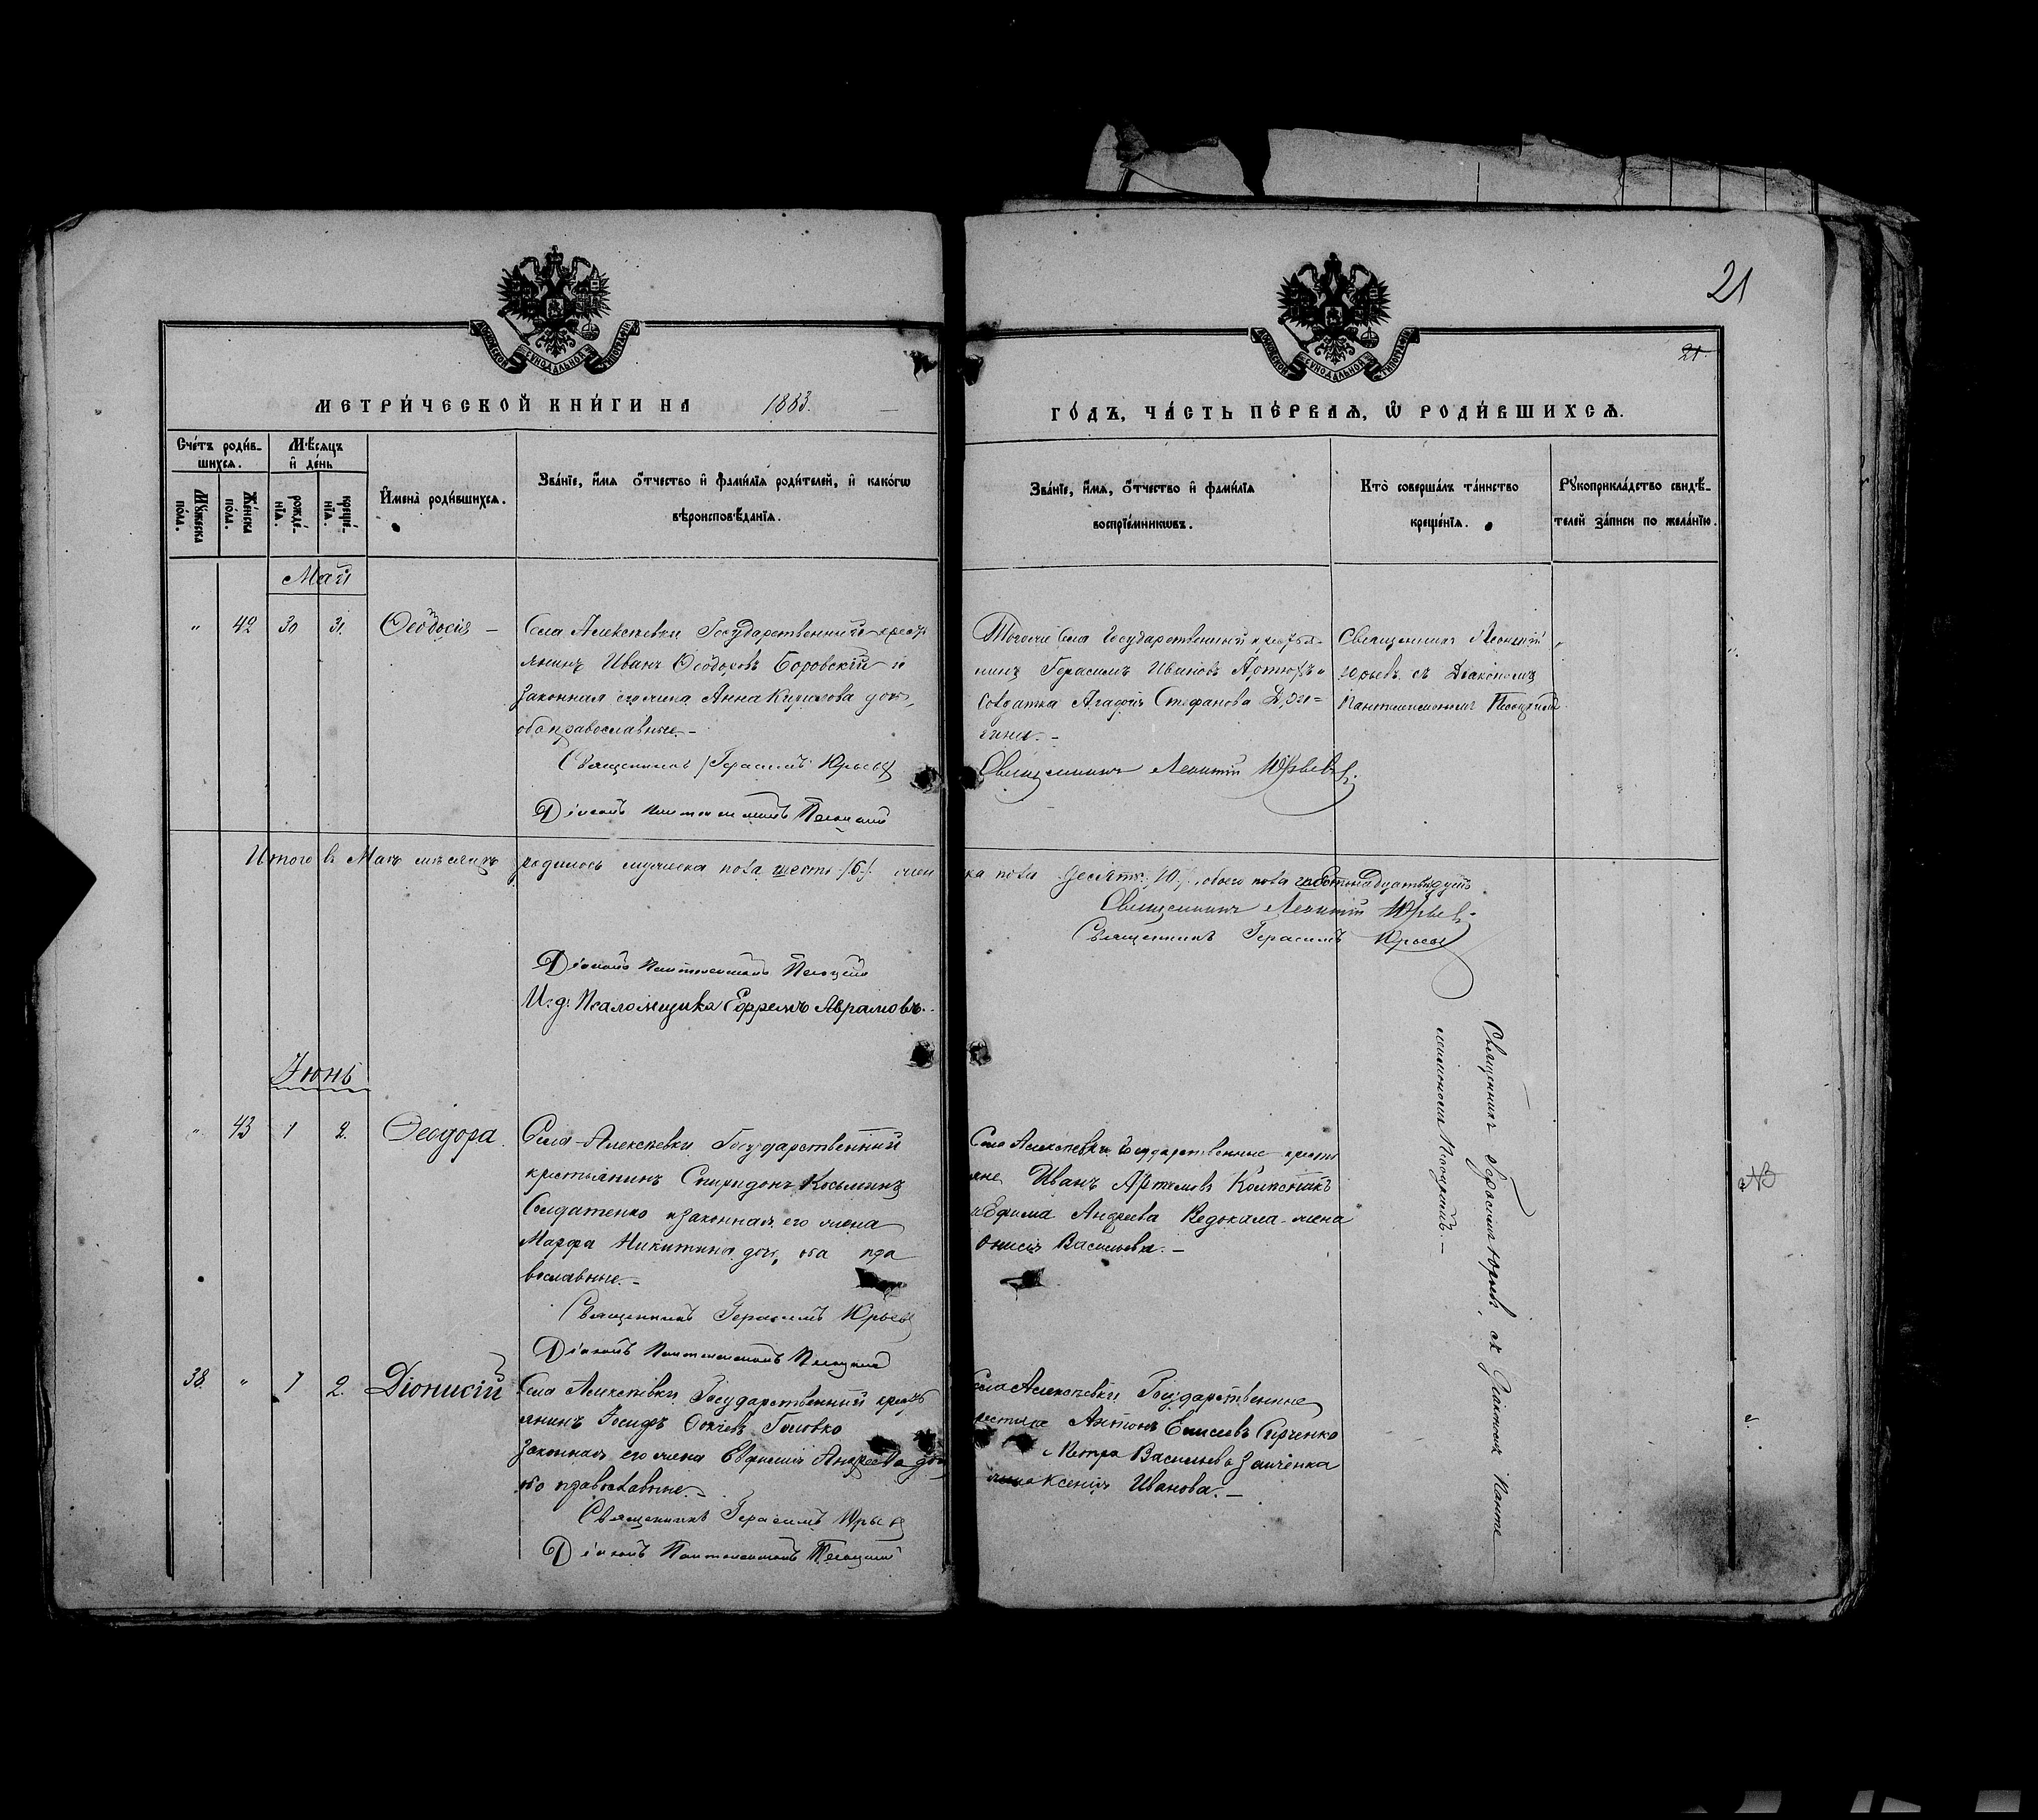 21
21.
МОСКОВСКОЙ СУНОДАЛЬНОЙ ТИПОГРАФІИ
МОСКОВСКОЙ СУНОДАЛЬНОЙ ТИПОГРАФІИ
МЕТРИ́ЧЕСКОЙ КНИ́ГИ НА 1883.
ГО́ДЪ, ЧА́СТЬ ПЕ́РВАѦ, Ѡ҆ РОДИ́ВШИХСѦ.
Сче́тъ роди́вшихсѧ.
Мꙋ́жеска по́ла.
Же́нска по́ла.
Мѣ́сѧцъ и҆ де́нь
рожде́нїѧ.
креще́нїѧ.
И҆мена̀ роди́вшихсѧ.
Зва́нїе, и҆́мѧ ѻ҆́тчество и҆ фами́лїѧ роди́телей, и҆ како́гѡ
вѣроисповѣ́данїѧ.
Зва́нїе, и҆́мѧ, ѻ҆́тчество и҆ фами́лїѧ
воспрїе́мникѡвъ.
Кто̀ соверша́лъ та́инство
креще́нїѧ.
Рꙋкоприкла́дство свидѣ́-
телей за́писи по жела́нїю.
Май
" 42 30 31. Ѳеодосія –
Села Алексѣевки Государственный крестья
янинъ Иванъ Ѳеодоровъ Боровскій и
законная его жена Анна Кирилова дочь,
оба православные. –
Священникъ Герасимъ Юрьевъ
Діаконъ Пантелеимонъ
Тогоже села Государственный крестья-
нинъ Герасимъ Ивановъ и
солдатка Агафія Стефанова
Священникъ Леонтій Юрьевъ.
Священникъ Леонтій
Юрьевъ съ Діакономъ
Пантелеимономъ
Итого въ Маѣ мѣсяцѣ родилось мужеска пола шесть (6). жен
ка пола десять (10), обоего пола шестнадцать душъ
Священникъ Леонтій Юрьевъ.
Священникъ Герасимъ Юрьевъ
Діаконъ Пантелеимонъ
И. д. Псаломщика Ефремъ Аврамовъ.
Іюнь
" 43 1 2. Ѳеодора.
Села Алексѣевки Государственный
крестьянинъ Спиридонъ Косьминъ
Солдатенко и законная его жена
Марфа Никитина дочь, оба пра
вославные. –
Священникъ Герасимъ Юрьевъ
Діаконъ Пантелеимонъ
Села Алексѣевки Государственные крестья
яне Иванъ Артемовъ
и Ефима Андреева жена
Васильева. –
Священникъ Герасимъ Юрьевъ, съ Діакономъ Панте
леимономъ
NB
38. " 1 2. Діонисій
Села Алексѣевки Государственный кресть
янинъ Іосифъ Головко
законная его жена Евфимія Андреева дочь
оба православные. –
Священникъ Герасимъ Юрьевъ
Діаконъ Пантелеимонъ
Села Алексѣевки Государственные
Антонъ Елисеевъ
Петра Васильева Заиченка
жена Ксенія Иванова. –